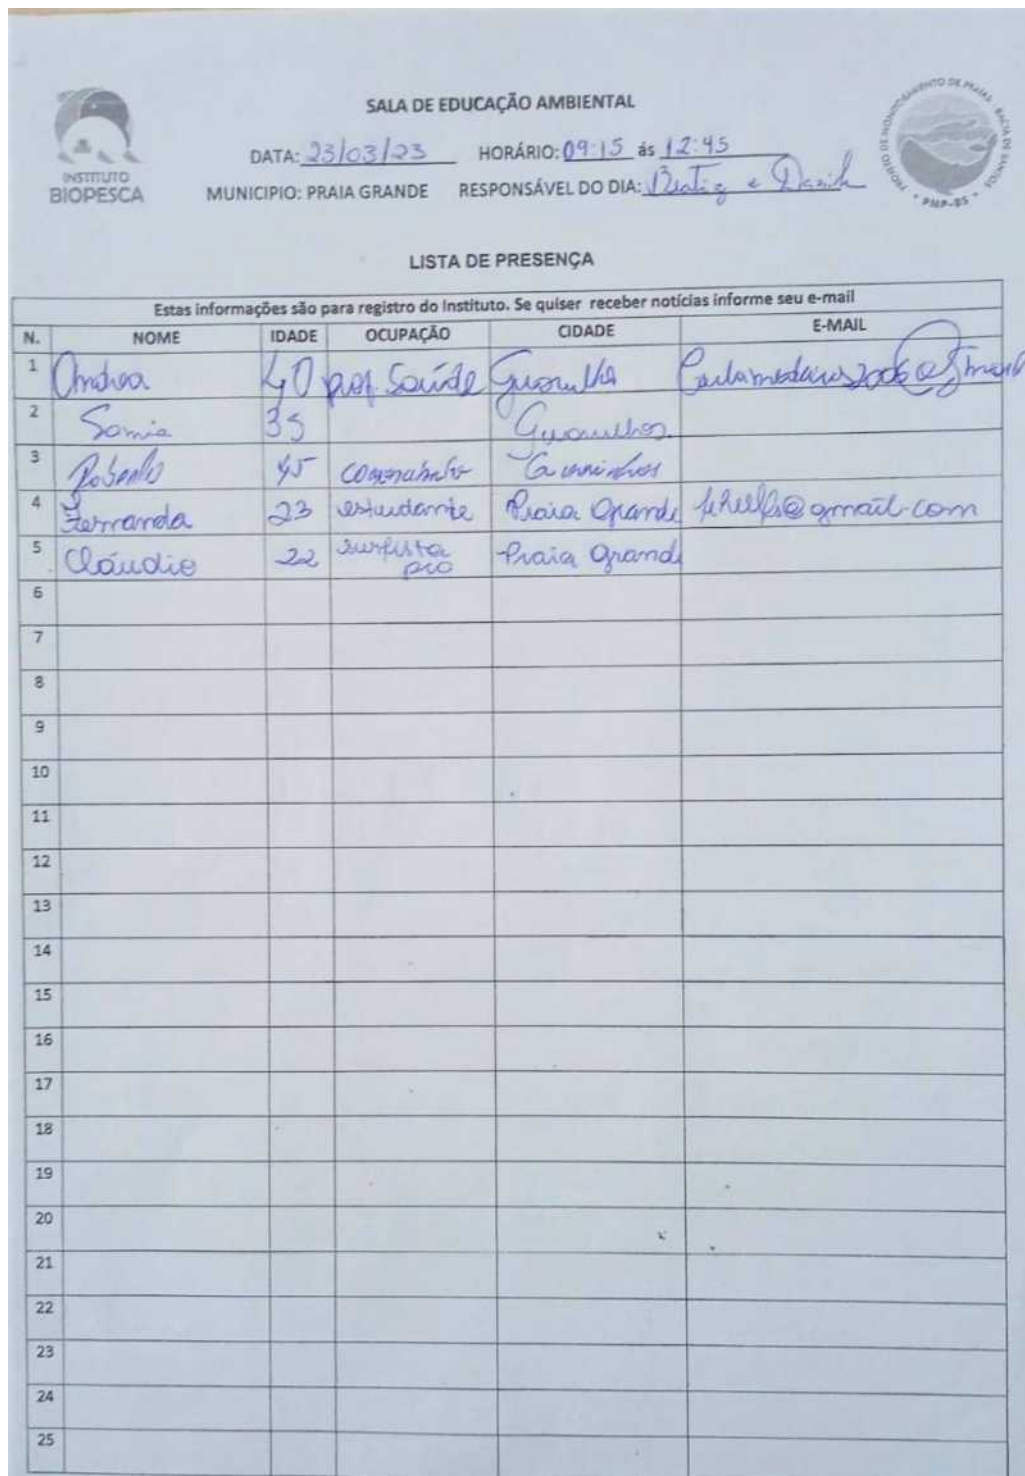 INSTITUTO
BIOPESCA
SALA DE EDUCAÇÃO AMBIENTAL
DATA: 23/03/23 HORÁRIO: 09:15 ás 12:45
MUNICIPIO: PRAIA GRANDE RESPONSÁVEL DO DIA: Beatriz e
PROJETO DE MONITORAMENTO DE PRAIAS - BACIA DE SANTOS
PMP-BS
LISTA DE PRESENÇA
Estas informações são para registro do Instituto. Se quiser receber notícias informe seu e-mail
N. NOME IDADE OCUPAÇÃO CIDADE E-MAIL
1 Andrea 40 prof. Saúde Guarulhos
2 Samia 35 Guarulhos
3 Roberto 45
4 Fernanda 23 estudante Praia Grande
5 Cláudio 22 surfista pro Praia Grande
6
7
8
9
10
11
12
13
14
15
16
17
18
19
20
21
22
23
24
25